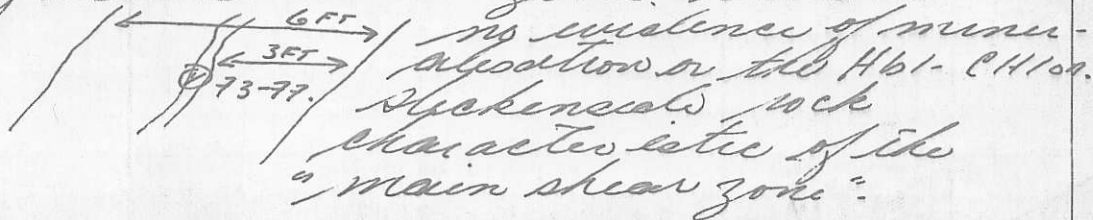 6 FT
3 FT
73-77.
no evidence of miner-
alisation or the Hbl- CHlor.
slickenside rock
characteristic of the
"main shear zone".